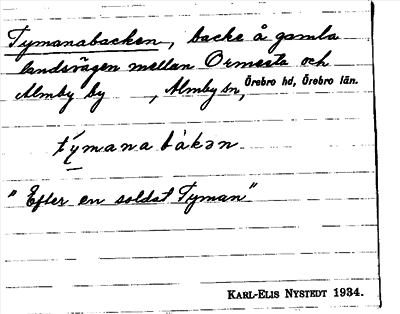 Tymanabacken, backe å gamla
landsvägen mellan Ormesta och
Almby by , Almby sn, Örebro hd, Örebro län.
týmanabàkən
"Efter en soldat Tyman"
KARL-ELIS NYSTEDT 1934.